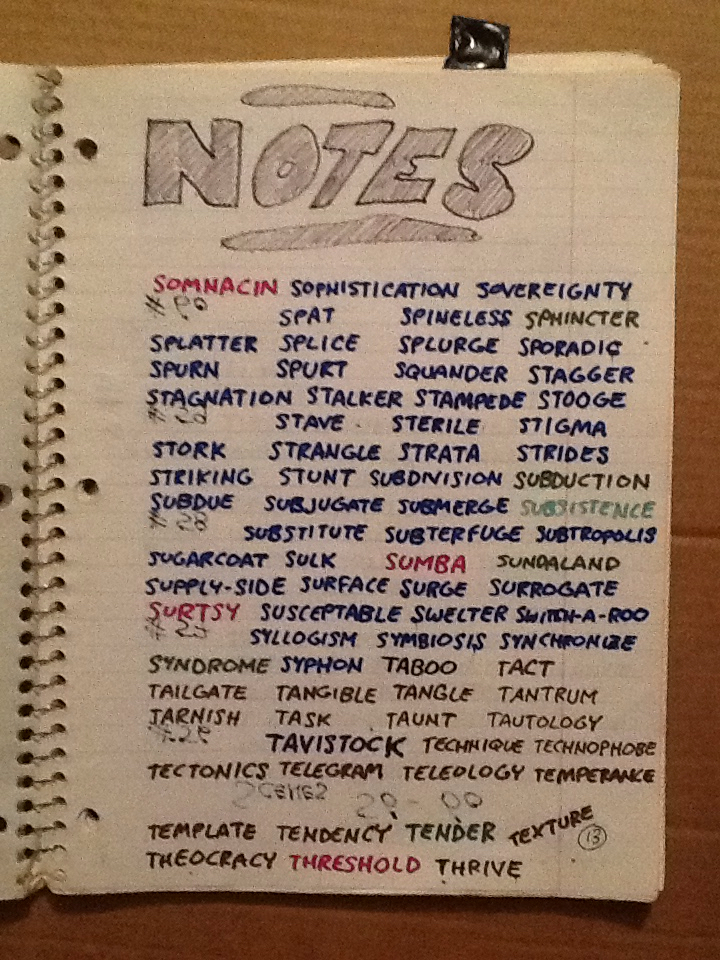 NOTES
SOMNACIN SOPHISTICATION SOVEREIGNTY
SPAT SPINELESS SPHINCTER
SPLATTER SPLICE SPLURGE SPORADIC
SPURN SPURT SQUANDER STAGGER
STAGNATION STALKER STAMPEDE STOOGE
STAVE STERILE STIGMA
STORK STRANGLE STRATA STRIDES
STRIKING STUNT SUBDIVISION SUBDUCTION
SUBDUE SUBJUGATE SUBMERGE SUBSISTENCE
SUBSTITUTE SUBTERFUGE SUBTROPOLIS
SUGARCOAT SULK SUMBA SUNDALAND
SUPPLY-SIDE SURFACE SURGE SURROGATE
SURTSY SUSCEPTABLE SWELTER SWITCH-A-ROO
SYLLOGISM SYMBIOSIS SYNCHRONIZE
SYNDROME SYPHON TABOO TACT
TAILGATE TANGIBLE TANGLE TANTRUM
TARNISH TASK TAUNT TAUTOLOGY
TAVISTOCK TECHNIQUE TECHNOPHOBE
TECTONICS TELEGRAM TELEOLOGY TEMPERANCE
TEMPLATE TENDENCY TENDER TEXTURE 13
THEOCRACY THRESHOLD THRIVE